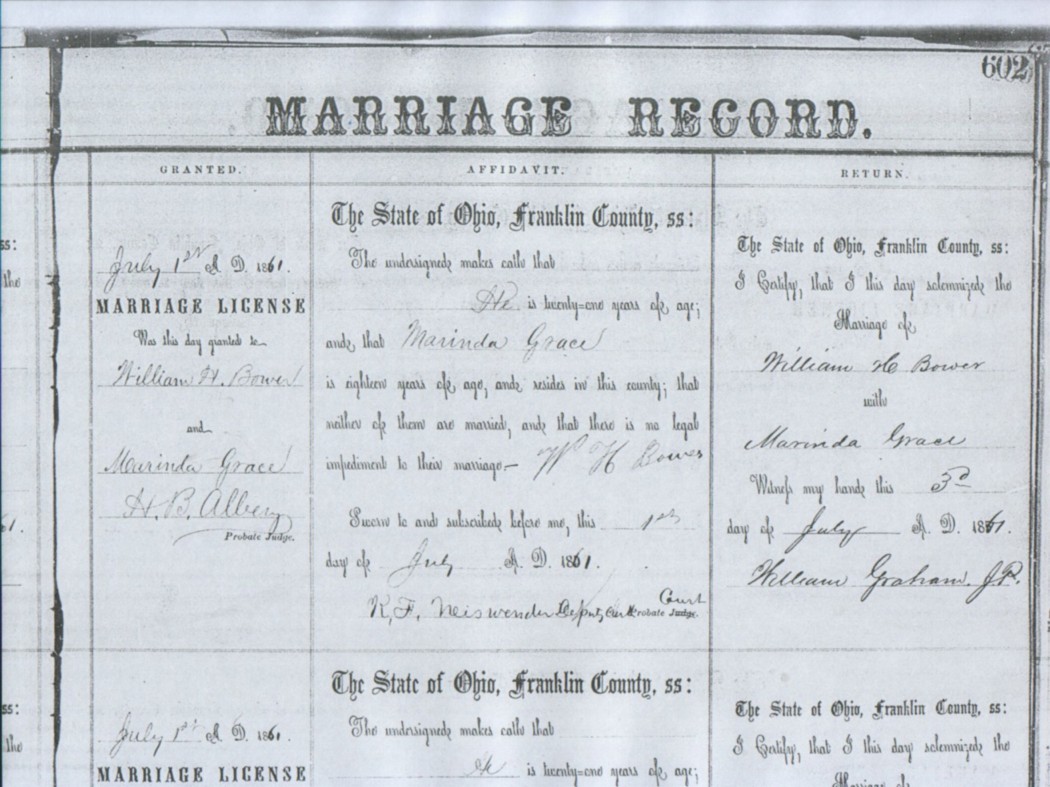 602
MARRIAGE RECORD.
GRANTED.
July 1st A. D. 1861.
MARRIAGE LICENSE
Was this day granted to
William H. Bower
and
Marinda Grace
H. B. Albery
Probate Judge.
AFFIDAVIT.
The State of Ohio, Franklin County, ss:
The undersigned makes oath that
He is twenty=one years of age;
and that Marinda Grace
is eighteen years of age, and resides in this county; that
neither of them are married, and that there is no legal
impediment to their marriage— W H Bower
Sworn to and subscribed before me, this 1st
day of July A. D. 1861.
K. F. Neiswender Deputy Clerk Probate Judge. Court
RETURN.
The State of Ohio, Franklin County, ss:
I Certify, that I this day solemnized the
Marriage of
William H Bower
with
Marinda Grace
Witness my hand this 3d
day of July A. D. 1861.
William Graham. J.P.
ss:
the
61.
July 1st A. D. 1861.
MARRIAGE LICENSE
The State of Ohio, Franklin County, ss:
The undersigned makes oath that
He is twenty=one years of age;
The State of Ohio, Franklin County, ss:
I Certify, that I this day solemnized the
Marriage of
ss:
the